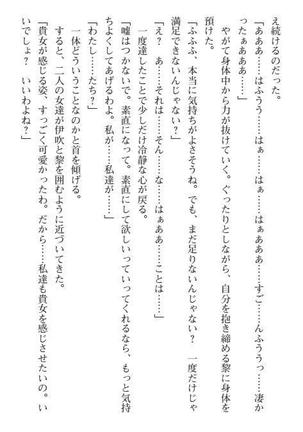 え続けるのだった。
「あああ……はふうう……はぁ……はぁあああ……すご……んふううっ……凄か
ったぁあああ……」
やがて身体中から力が抜けていく。ぐったりとしながら、自分を抱き締める黎に身体を
預けた。
「ふふふ、本当に気持ちがよさそうね。でも、まだ足りないんじゃない？　一度だけじゃ
満足できないんじゃない？」
「え？　あ……それは……そんな……はぁああ……ことは……」
一度達したことで少しだけ冷静な心が戻る。
「嘘はつかないで。素直になって。素直にして欲しいっていってくれるなら、もっと気持
ちよくしてあげるわよ。私が……私達が……」
「わたし……たち？」
一体どういうことなのかと首を傾げる。
すると、二人の女達が伊吹と黎を囲むように近づいてきた。
「貴女が感じる姿、すっごく可愛かったわ。だから……私達も貴女を感じさせたいの。い
いでしょ？　いいわよね？」